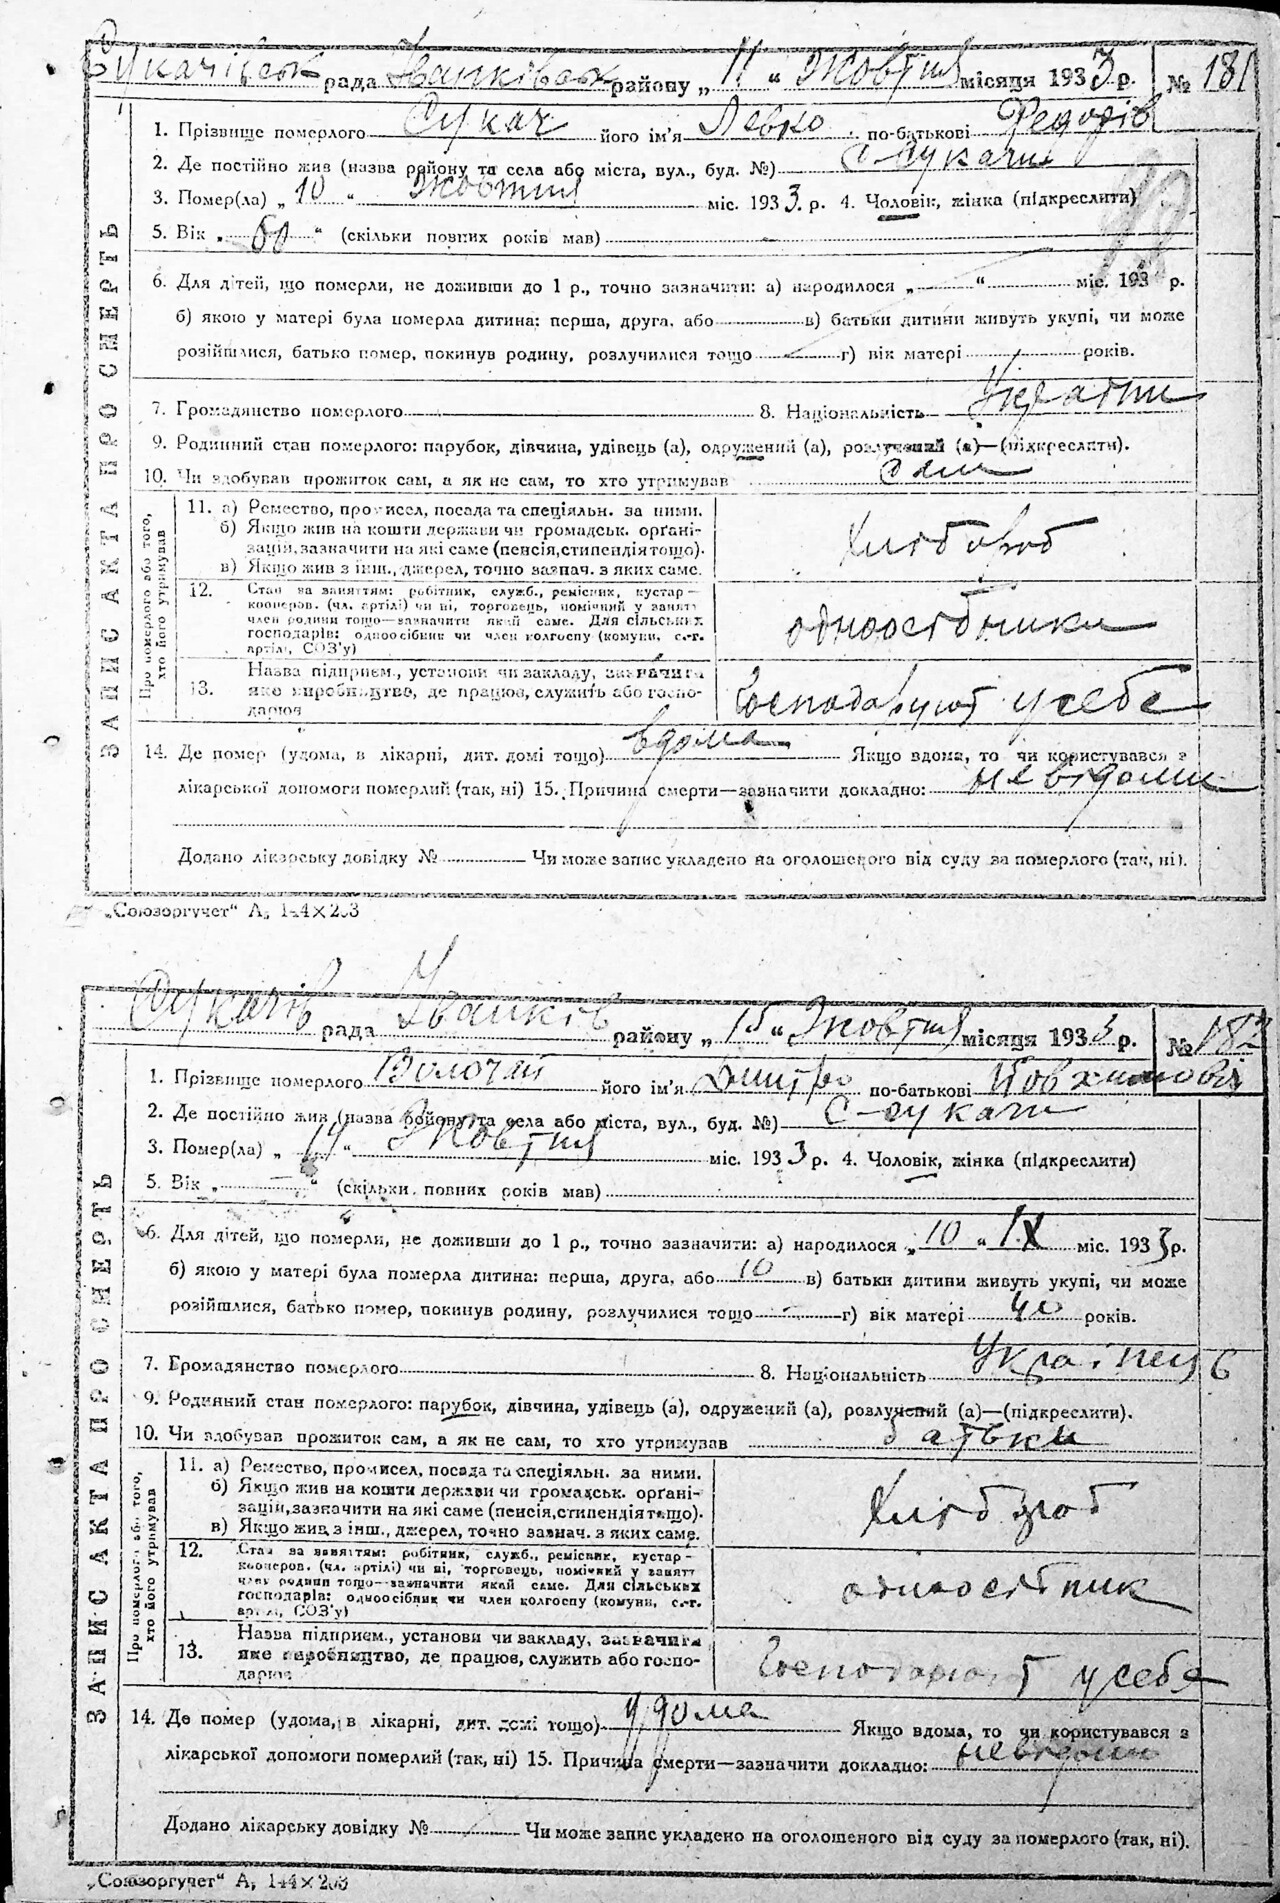 Сукачівськ рада Іванківськ району „ 11 “ Жовтня місяця 1933 р. № 181
ЗАПИС АКТА ПРО СМЕРТЬ
1. Прізвище померлого Сукач його ім'я Левко по-батькові Федорів
2. Де постійно жив (назва району та села або міста, вул., буд. №) с-Сукачи
3. Помер(ла) „ 10 “ Жовтня міс. 1933. р. 4. Чоловік, жінка (підкреслити)
5. Вік „ 60 “ (скільки повних років мав)
6. Для дітей, що померли, не доживши до 1 р., точно зазначити: а) народилося „ “ міс. 193 р.
б) якою у матері була померла дитина: перша, друга, або в) батьки дитини живуть укупі, чи може
розійшлися, батько помер, покинув родину, розлучилися тощо г) вік матері років.
7. Громадянство померлого 8. Національність
9. Родинний стан померлого: парубок, дівчина, удівець (а), одружений (а), розлучений (а)—(підкреслити).
10. Чи здобував прожиток сам, а як не сам, то хто утримував сам
Про померлого або того, хто його утримував
11. а) Ремество, промисел, посада та спеціяльн. за ними.
б) Якщо жив на кошти держави чи громадськ. орґані-
зацій, зазначити на які саме (пенсія, стипендія тощо).
в) Якщо жив з інш., джерел, точно зазнач. з яких саме.
Хлібороб
12. Стан за заняттям: робітник, служб., ремісник, кустар—
кооперов. (чл. артілі) чи ні, торговець, помічний у занятт
член родини тощо—зазначити який саме. Для сільських
господарів: одноосібник чи член колгоспу (комуни, с.-г.
артілі, СОЗ'у)
одноосібники
13. Назва підприєм., установи чи закладу, зазначити
яке виробництво, де працює, служить або госпо-
дарює
Господарюют у себе
14. Де помер (удома, в лікарні, дит. домі тощо) вдома Якщо вдома, то чи користувався з
лікарської допомоги померлий (так, ні) 15. Причина смерти—зазначити докладно: невідоми
Додано лікарську довідку № Чи може запис укладено на оголошеного від суду за померлого (так, ні).
„Союзоргучет“ А, 144×203
Сукачів рада Іванків району „ 15 “ Жовтня місяця 1933 р. № 182
ЗАПИС АКТА ПРО СМЕРТЬ
1. Прізвище померлого Волочай його ім'я Дмитро по-батькові
2. Де постійно жив (назва району та села або міста, вул., буд. №) с-Сукачи
3. Помер(ла) „ “ Жовтня міс. 1933 р. 4. Чоловік, жінка (підкреслити)
5. Вік „ — “ (скільки повних років мав)
6. Для дітей, що померли, не доживши до 1 р., точно зазначити: а) народилося „ 10 “ IX міс. 1933 р.
б) якою у матері була померла дитина: перша, друга, або 10 в) батьки дитини живуть укупі, чи може
розійшлися, батько помер, покинув родину, розлучилися тощо г) вік матері 40 років.
7. Громадянство померлого 8. Національність Українец 6
9. Родинний стан померлого: парубок, дівчина, удівець (а), одружений (а), розлучений (а)—(підкреслити).
10. Чи здобував прожиток сам, а як не сам, то хто утримував батьки
Про померлого або того, хто його утримував
11. а) Ремество, промисел, посада та спеціяльн. за ними.
б) Якщо жив на кошти держави чи громадськ. орґані-
зацій, зазначити на які саме (пенсія, стипендія тощо).
в) Якщо жив з інш., джерел, точно зазнач. з яких саме.
Хлібороб
12. Стан за заняттям: робітник, служб., ремісник, кустар—
кооперов. (чл. артілі) чи ні, торговець, помічний у занятт
член родини тощо—зазначити який саме. Для сільських
господарів: одноосібник чи член колгоспу (комуни, с.-г.
артілі, СОЗ'у)
одноосібник
13. Назва підприєм., установи чи закладу, зазначити
яке виробництво, де працює, служить або госпо-
дарює
Господарюют у себя
14. Де помер (удома, в лікарні, дит. домі тощо) удома Якщо вдома, то чи користувався з
лікарської допомоги померлий (так, ні) 15. Причина смерти—зазначити докладно: невідоми
Додано лікарську довідку № Чи може запис укладено на оголошеного від суду за померлого (так, ні).
„Союзоргучет“ А, 144×203